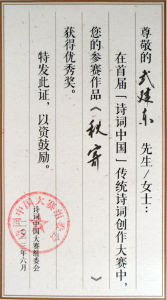 尊敬的 武建东 先生/女士：
在首届「诗词中国」传统诗词创作大赛中，
您的参赛作品《秋寄》
获得优秀奖。
特发此证，以资鼓励。
诗词中国大赛组委会
二〇一三年六月
诗词中国大赛组委会